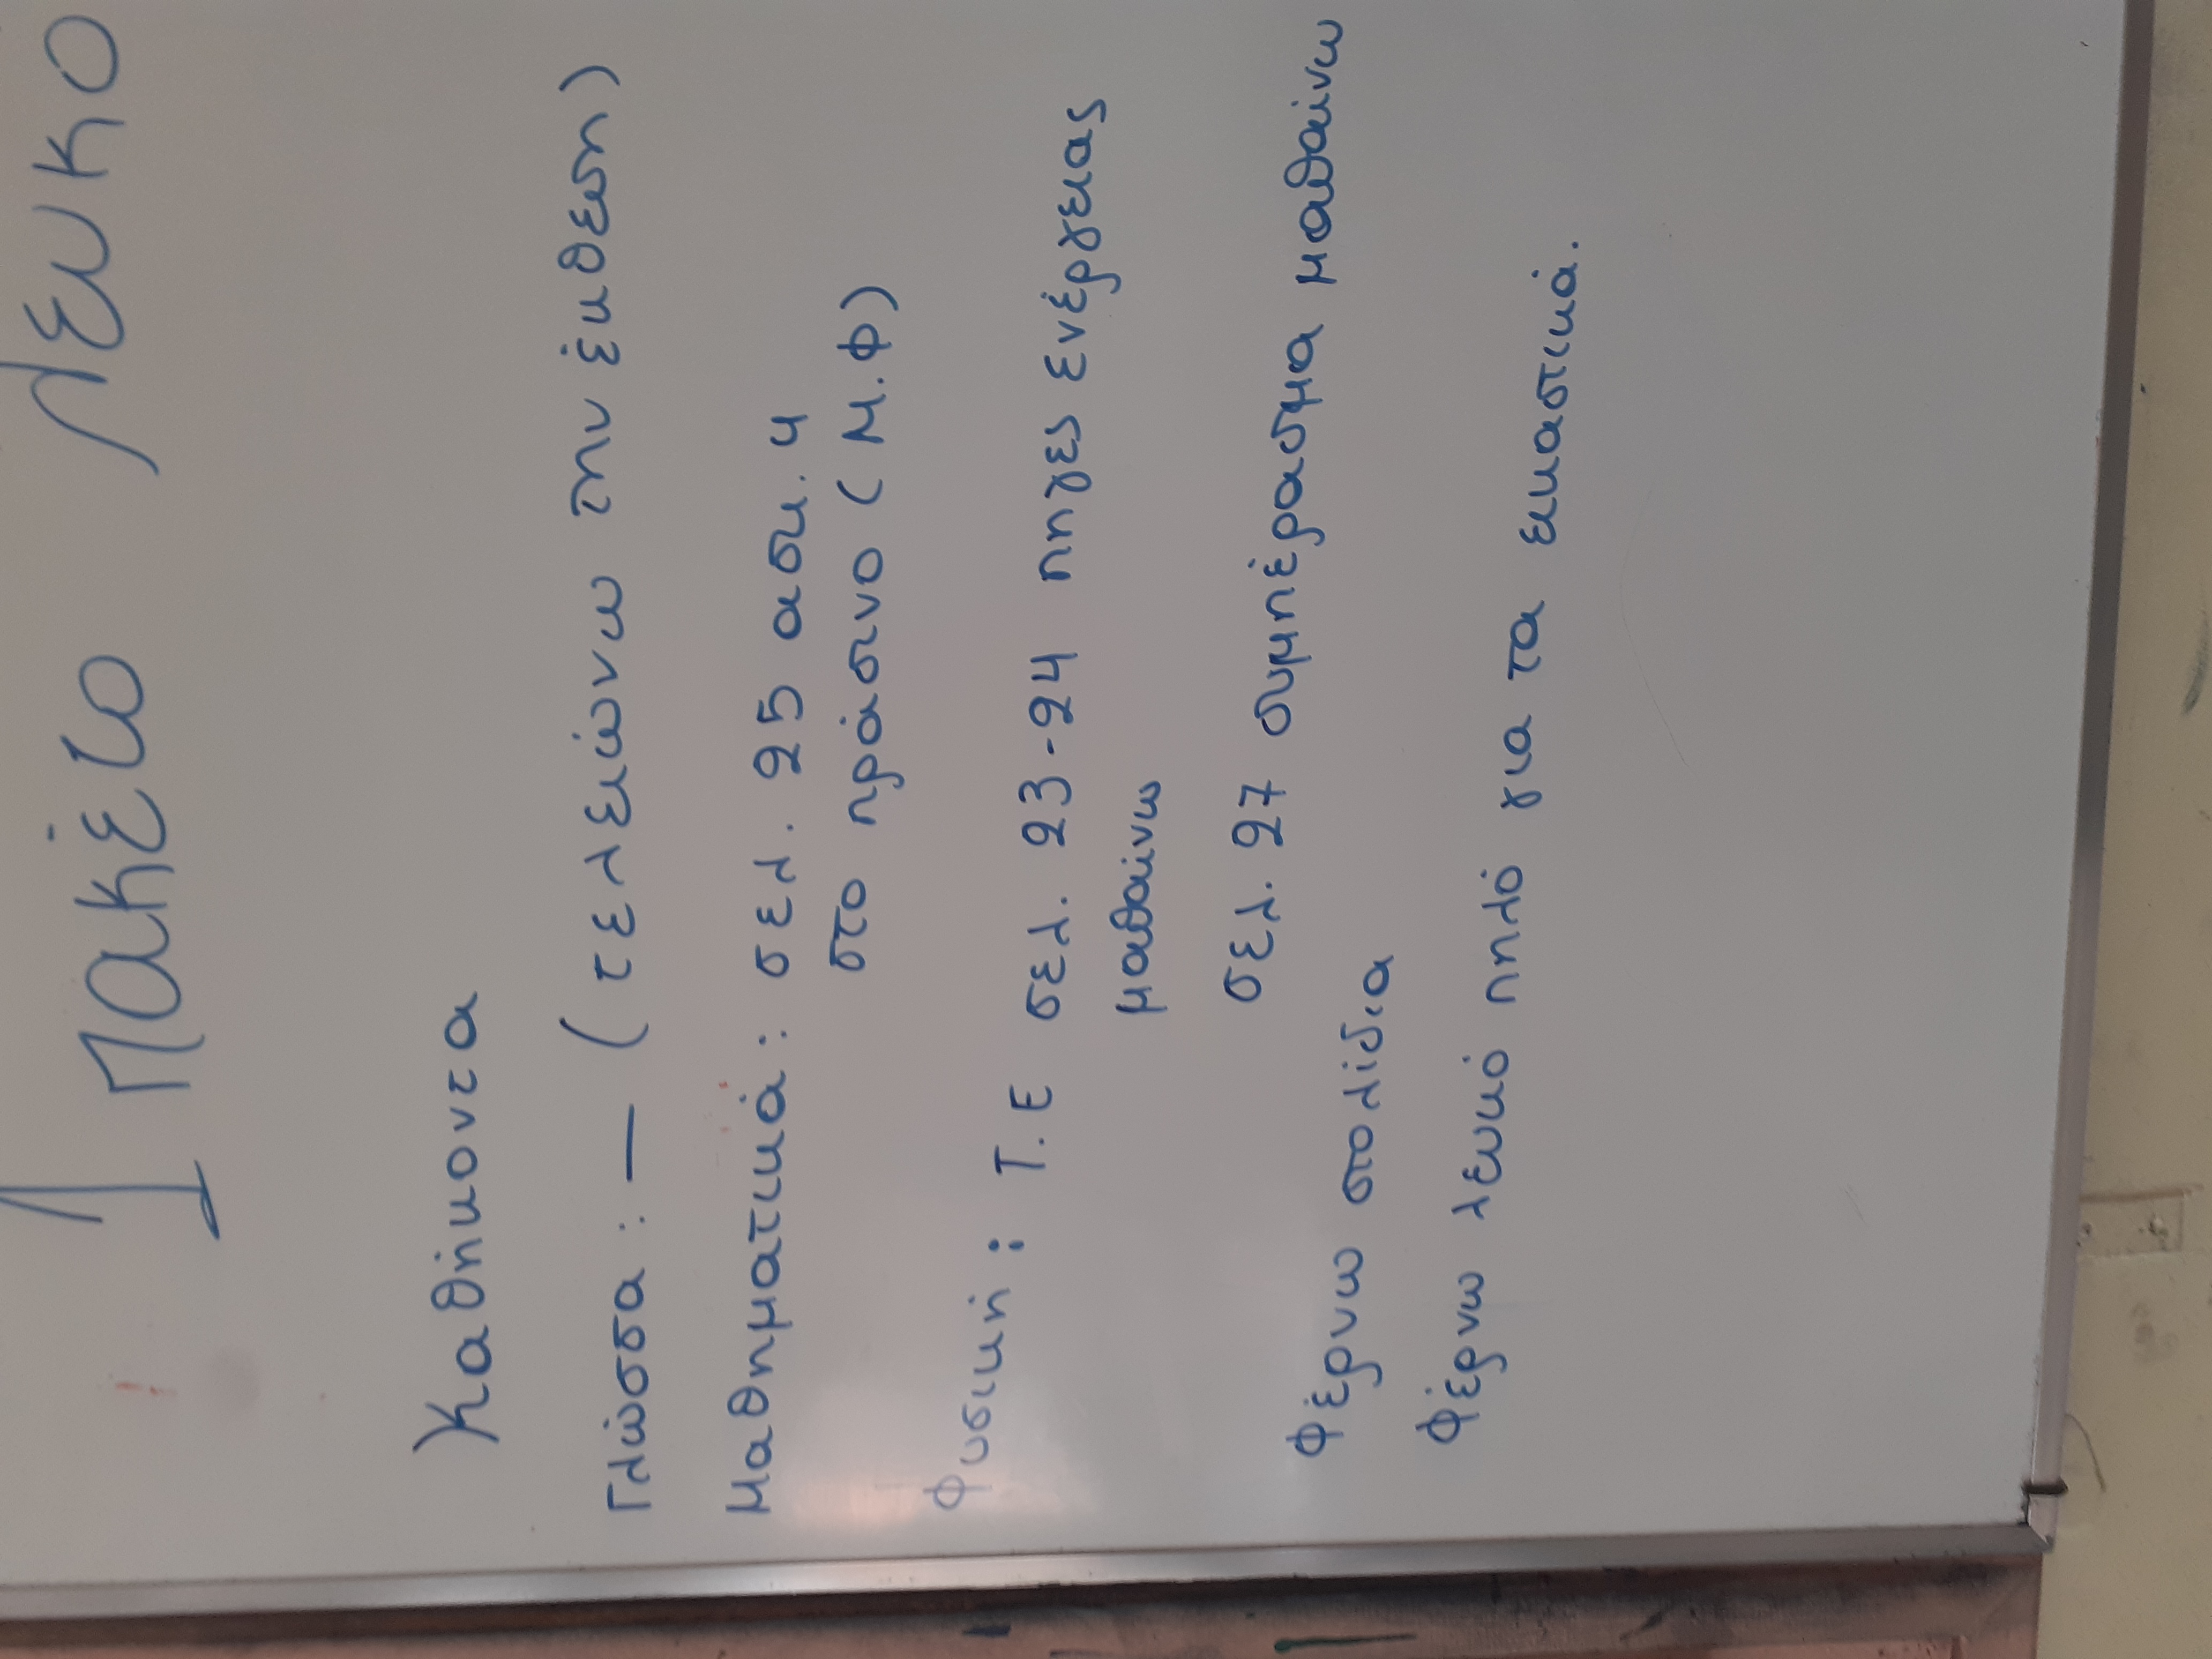 1 πακέτο λευκό
Καθήκοντα
Γλώσσα: — (τελειώνω την έκθεση)
Μαθηματικά: σελ. 25 ασκ. 4
στο πράσινο (Μ.Φ)
Φυσική: Τ.Ε σελ. 23-24 πηγες ενέργειας
μαθαίνω
σελ. 27 συμπέρασμα μαθαίνω
Φέρνω στολίδια
Φέρνω λευκό πηλό για τα εικαστικά.